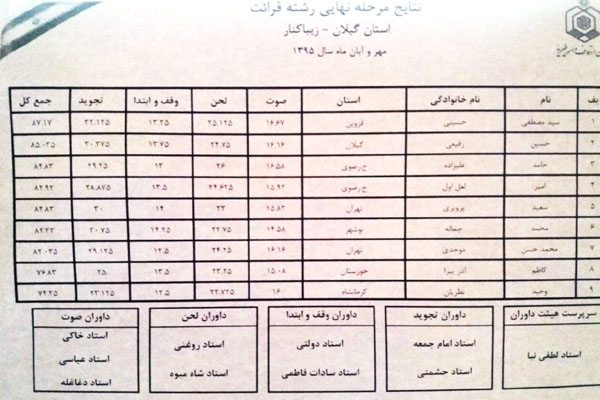 نتایج مرحله نهایی رشته قرائت
استان گیلان - زیباکنار
مهر و آبان ماه سال ۱۳۹۵
ردیف نام نام خانوادگی استان صوت لحن وقف و ابتدا تجوید جمع کل
۱ سید مصطفی حسینی قزوین ۱۶.۶۷ ۲۵.۱۲۵ ۱۳.۲۵ ۳۲.۱۲۵ ۸۷.۱۷
۲ حسین رفیعی گیلان ۱۶.۱۶ ۲۴.۷۵ ۱۳.۷۵ ۳۰.۳۷۵ ۸۵.۰۳۵
۳ حامد علیزاده خ.رضوی ۱۶.۵۸ ۲۶ ۱۳ ۲۹.۲۵ ۸۴.۸۳
۴ امیر لعل اول خ.رضوی ۱۵.۹۲ ۲۴.۶۲۵ ۱۳.۵ ۲۸.۸۷۵ ۸۲.۹۲
۵ سعید پرویزی تهران ۱۵.۸۳ ۲۳ ۱۴ ۳۰ ۸۲.۸۳
۶ محمد جماله بوشهر ۱۴.۵۸ ۲۲.۷۵ ۱۴.۲۵ ۳۰.۷۵ ۸۲.۳۳
۷ محمد حسن موحدی تهران ۱۶.۱۶ ۲۴.۲۵ ۱۲.۵ ۲۹.۱۲۵ ۸۲.۰۳۵
۸ کاظم آذر پیرا خوزستان ۱۵.۰۸ ۲۳.۲۵ ۱۳.۵ ۲۵ ۷۶.۸۳
۹ وحید نظریان کرمانشاه ۱۶ ۲۲.۷۲۵ ۱۲.۵ ۲۳.۱۲۵ ۷۴.۳۵
سرپرست هیئت داوران
استاد لطفی نیا
داوران تجوید
استاد امام جمعه
استاد حشمتی
داوران وقف و ابتدا
استاد دولتی
استاد سادات فاطمی
داوران لحن
استاد روغنی
استاد شاه میوه
داوران صوت
استاد خاکی
استاد عباسی
استاد دغاغله